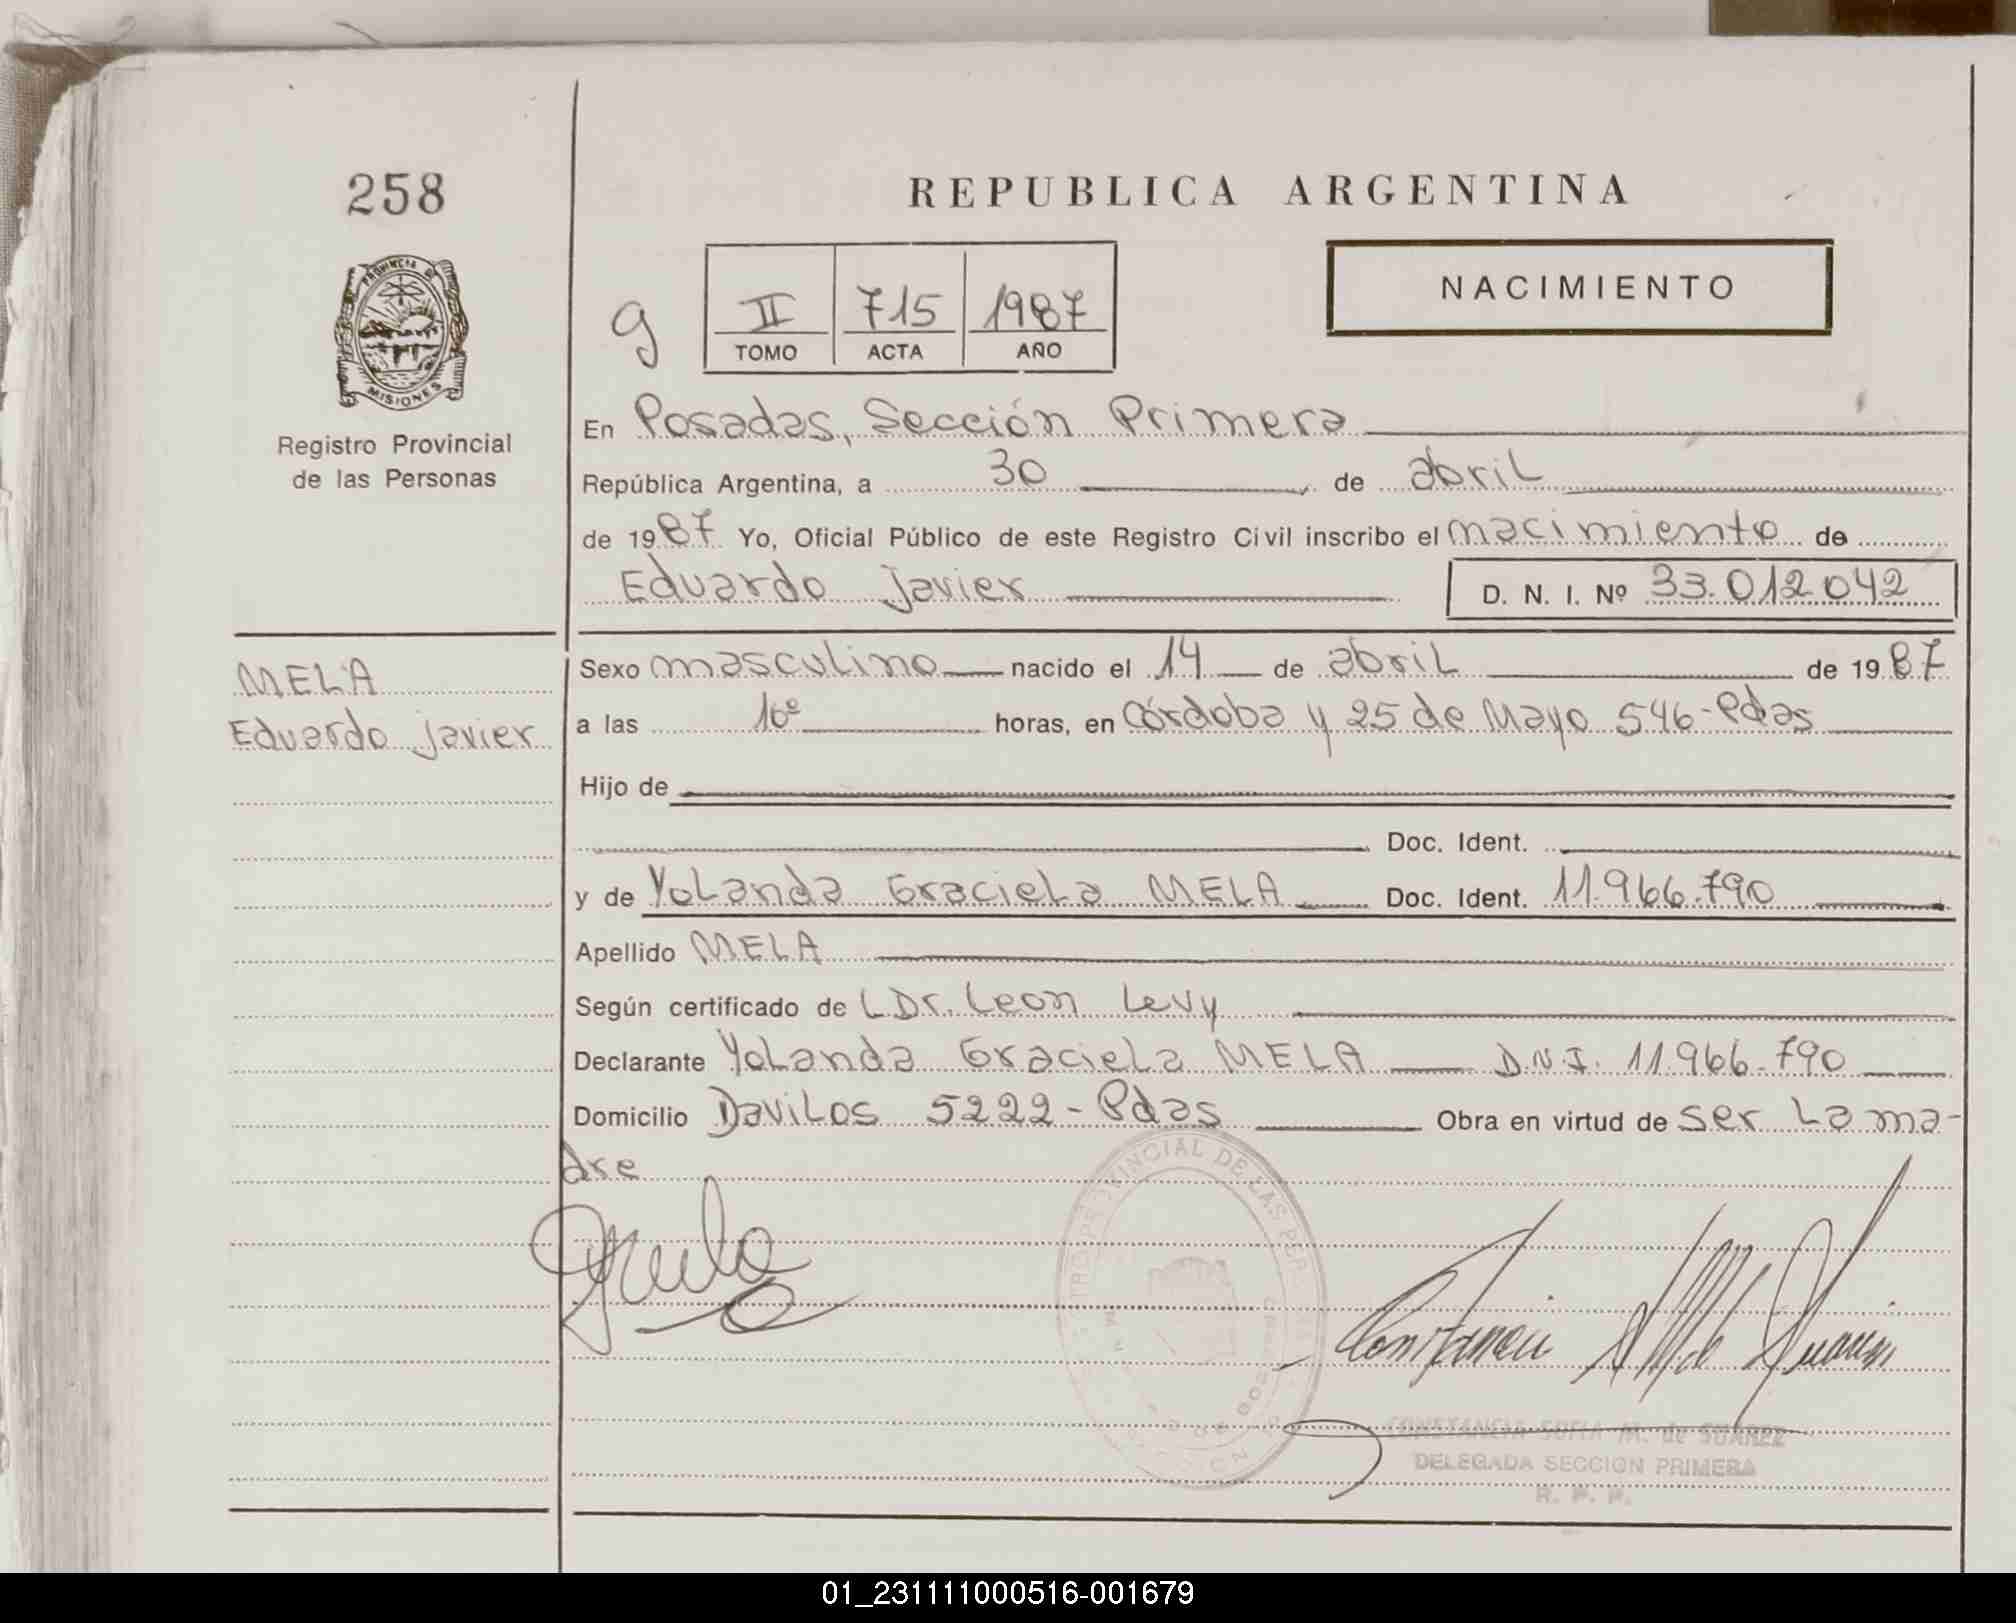 258
REPUBLICA ARGENTINA
NACIMIENTO
g
II 715 1987
TOMO ACTA AÑO
PROVINCIA DE
MISIONES
Registro Provincial
de las Personas
En Posadas, Sección Primera
República Argentina, a 30 de abril
de 1987 Yo, Oficial Público de este Registro Civil inscribo el nacimiento de
Eduardo Javier D. N. I. Nº 33.012.042
MELA
Eduardo Javier
Sexo masculino nacido el 14 de abril de 1987
a las 10º horas, en Córdoba y 25 de Mayo 546-Pdas
Hijo de
Doc. Ident.
y de Yolanda Graciela MELA Doc. Ident. 11.966.790
Apellido MELA
Según certificado de LDr. Leon Levy
Declarante Yolanda Graciela MELA D.N.I. 11.966.790
Domicilio Davilos 5222-Pdas Obra en virtud de ser la ma-
dre
PROVINCIAL DE LAS PERSONAS
CONSTANCIA SOFIA M. de SUAREZ
DELEGADA SECCION PRIMERA
R. P. P.
01_231111000516-001679